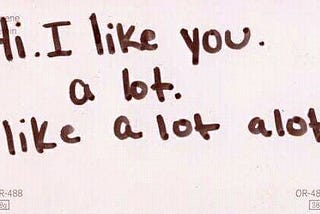 Hi. I like you.
a lot.
like a lot alot
R-488
OR-48